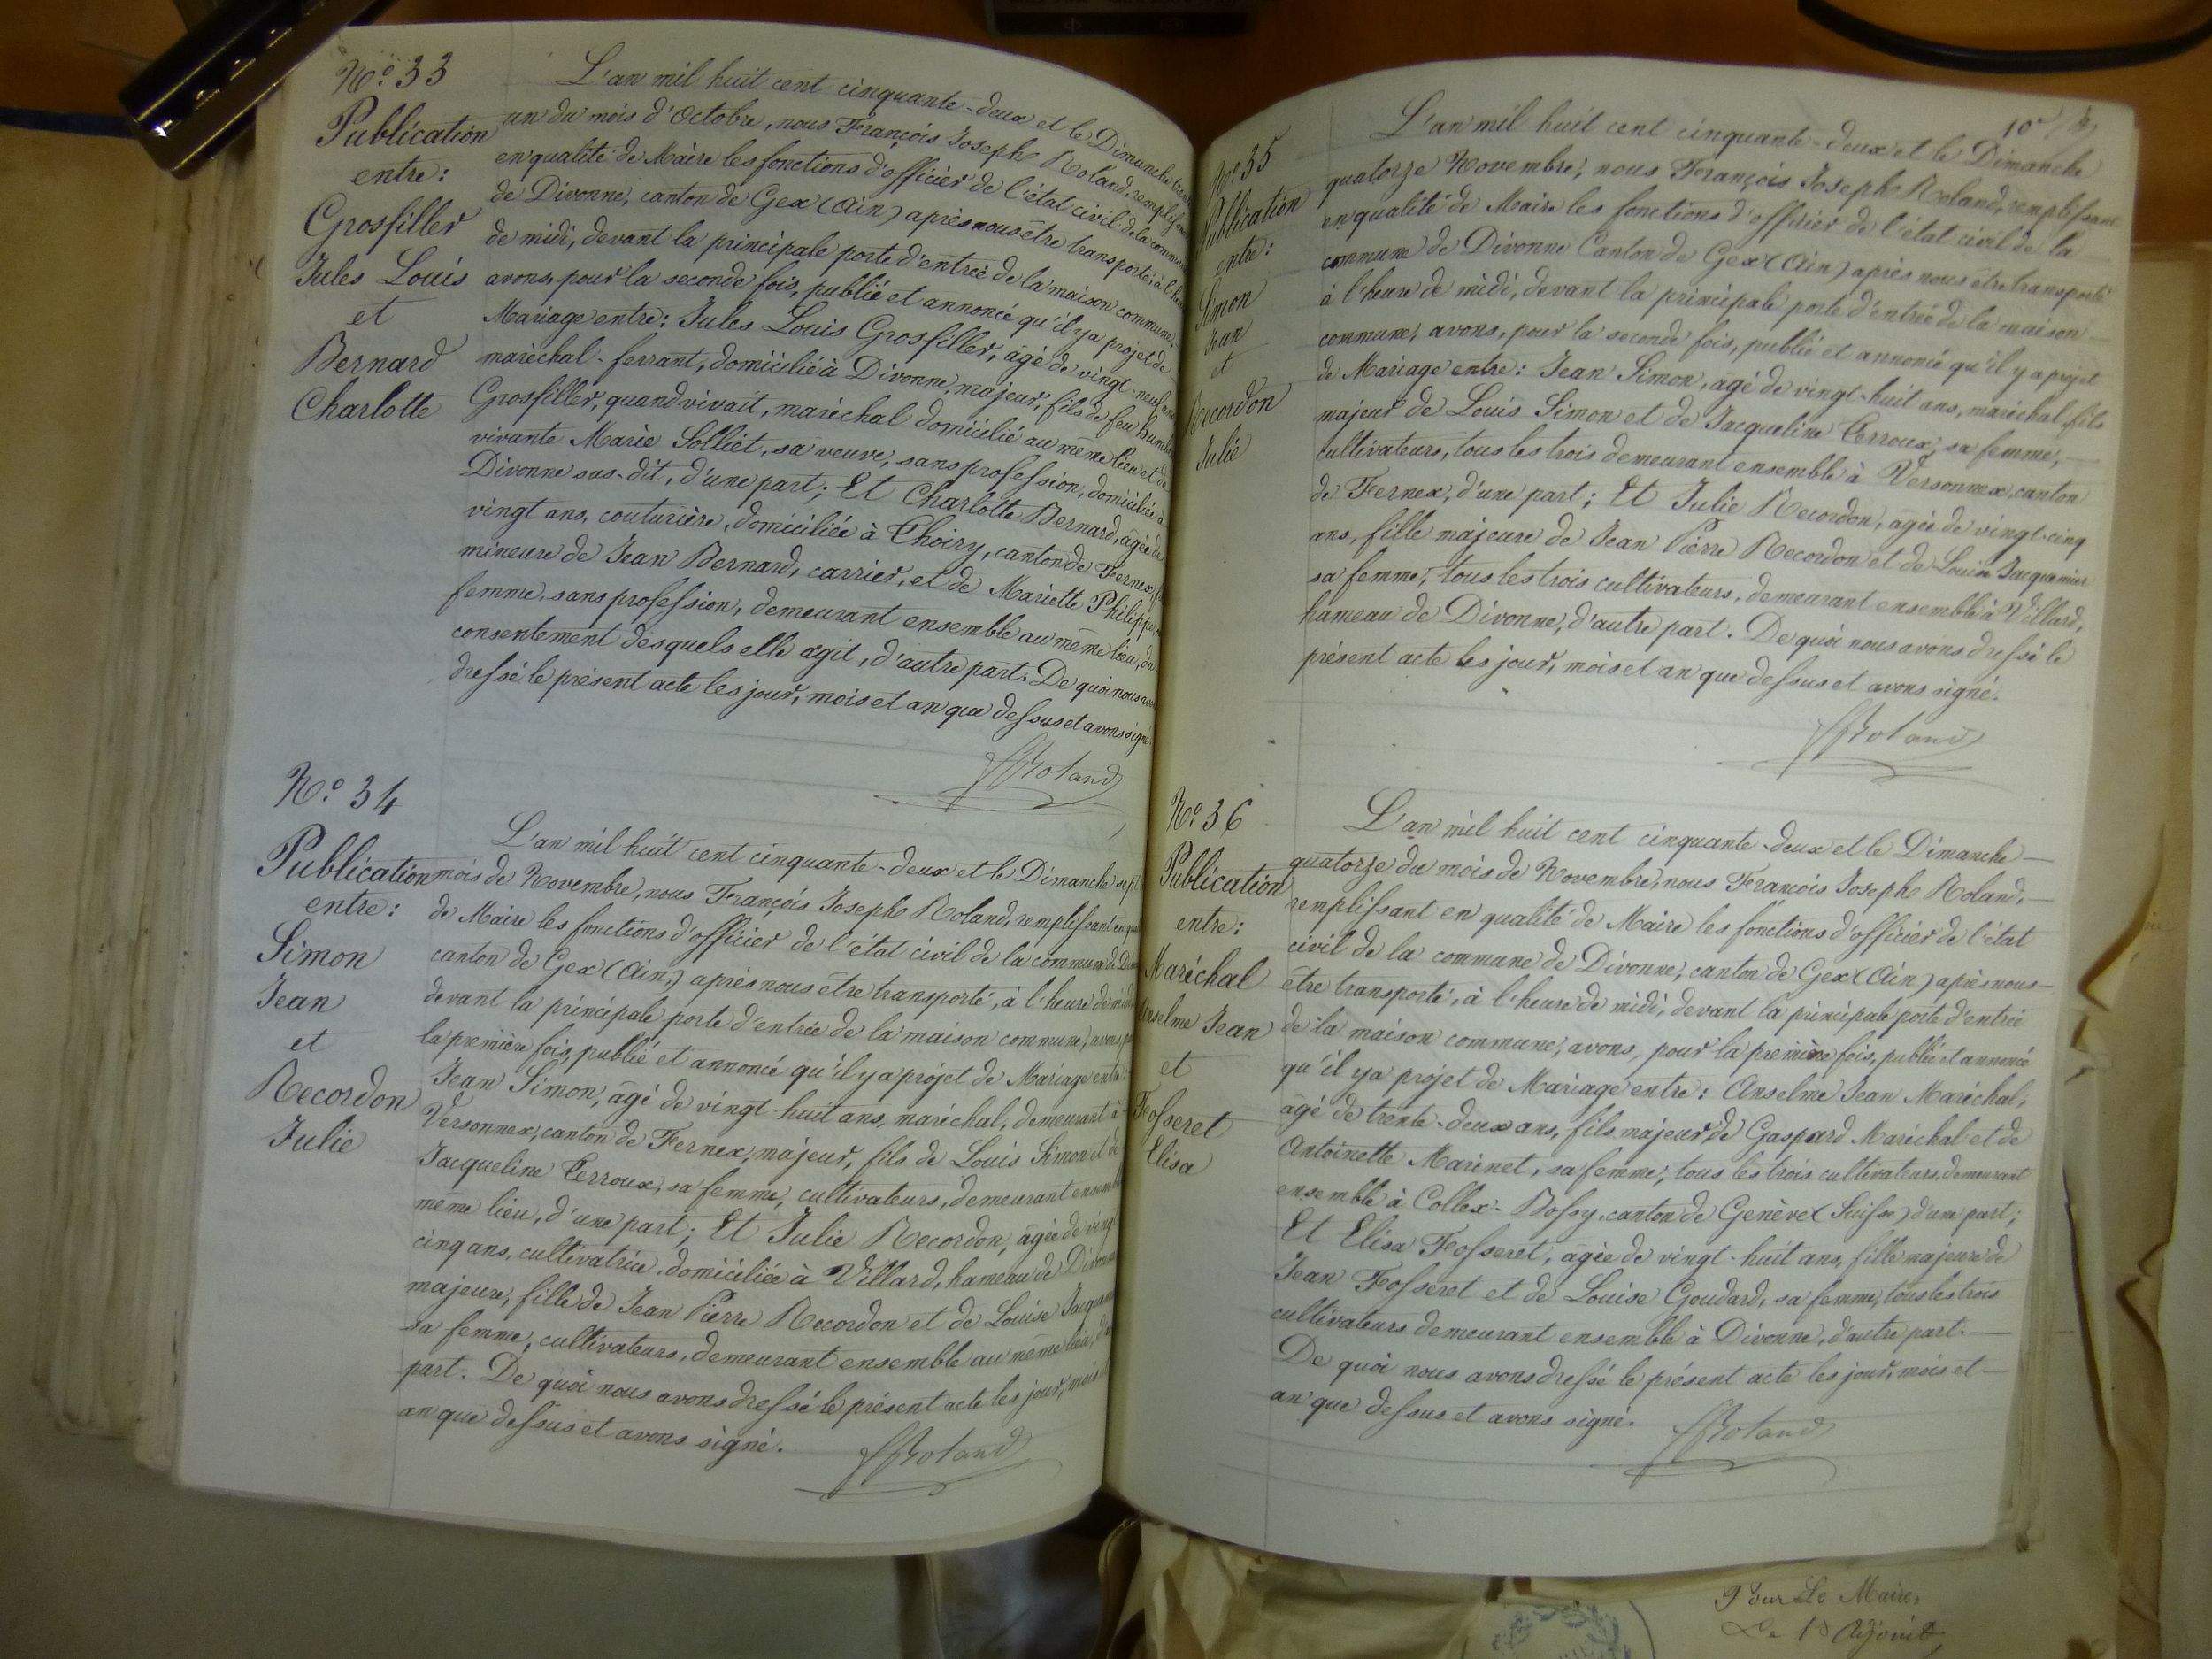 Nº 33
Publication
entre:
Grosfiller
Jules Louis
et
Bernard
Charlotte
L'an mil huit cent cinquante-deux et le Dimanche
un du mois d'Octobre, nous François Joseph Roland, remplissant
en qualité de Maire les fonctions d'officier de l'état civil de la commune
de Divonne, canton de Gex (Ain) après nous être transporté, à l'heure
de midi, devant la principale porte d'entrée de la maison commune,
avons, pour la seconde fois, publié et annoncé qu'il y a projet de
Mariage entre: Jules Louis Grosfiller, âgé de vingt-neuf ans
maréchal-ferrant, domicilié à Divonne, majeur, fils de feu
Grosfiller, quand vivait, maréchal domicilié au même lieu et de
vivante Marie Solliet, sa veuve, sans profession, domiciliée à
Divonne sus-dit, d'une part; Et Charlotte Bernard, âgée de
vingt ans, couturière, domiciliée à Thoiry, canton de Fernex,
mineure de Jean Bernard, carrier, et de Mariette Philippe,
femme, sans profession, demeurant ensemble au même lieu, du
consentement desquels elle agit, d'autre part. De quoi nous avons
dressé le présent acte les jour, mois et an que dessus et avons signé.
FJRoland
Nº 34
Publication
entre:
Simon
Jean
et
Recordon
Julie
L'an mil huit cent cinquante-deux et le Dimanche sept
mois de Novembre, nous François Joseph Roland, remplissant en
de Maire les fonctions d'officier de l'état civil de la commune de
canton de Gex (Ain,) après nous être transporté, à l'heure de midi
devant la principale porte d'entrée de la maison commune, avons,
la première fois, publié et annoncé qu'il y a projet de Mariage entre:
Jean Simon, âgé de vingt-huit ans, maréchal, demeurant à
Versonnex, canton de Fernex, majeur, fils de Louis Simon et de
Jacqueline Terroux, sa femme, cultivateurs, demeurant ensemble
même lieu, d'une part; Et Julie Recordon, âgée de vingt
cinq ans, cultivatrice, domiciliée à Villard, hameau de Divonne
majeure, fille de Jean Pierre Recordon et de Louise
sa femme, cultivateurs, demeurant ensemble au même lieu,
part. De quoi nous avons dressé le présent acte les jour, mois
an que dessus et avons signé.
FJRoland
10
Nº 35
Publication
entre:
Simon
Jean
et
Recordon
Julie
L'an mil huit cent cinquante-deux et le Dimanche
quatorze Novembre, nous François Joseph Roland, remplissant
en qualité de Maire les fonctions d'officier de l'état civil de la
commune de Divonne Canton de Gex (Ain) après nous être transporté
à l'heure de midi, devant la principale porte d'entrée de la maison
commune, avons, pour la seconde fois, publié et annoncé qu'il y a projet
de Mariage entre: Jean Simon, âgé de vingt-huit ans, maréchal, fils
majeur de Louis Simon et de Jacqueline Terroux, sa femme,
cultivateurs, tous les trois demeurant ensemble à Versonnex, canton
de Fernex, d'une part; Et Julie Recordon, âgée de vingt-cinq
ans, fille majeure de Jean Pierre Recordon et de Louise Jacquemier
sa femme, tous les trois cultivateurs, demeurant ensemble à Villard,
hameau de Divonne, d'autre part. De quoi nous avons dressé le
présent acte les jour, mois et an que dessus et avons signé.
FJRoland
Nº 36
Publication
entre:
Maréchal
Anselme Jean
et
Fosseret
Elisa
L'an mil huit cent cinquante-deux et le Dimanche
quatorze du mois de Novembre, nous François Joseph Roland,
remplissant en qualité de Maire les fonctions d'officier de l'état
civil de la commune de Divonne, canton de Gex (Ain) après nous
être transporté, à l'heure de midi, devant la principale porte d'entrée
de la maison commune, avons, pour la première fois, publié et annoncé
qu'il y a projet de Mariage entre: Anselme Jean Maréchal,
âgé de trente-deux ans, fils majeur de Gaspard Maréchal et de
Antoinette Marinet, sa femme, tous les trois cultivateurs, demeurant
ensemble à Collex-Bossy, canton de Genève (Suisse) d'une part;
Et Elisa Fosseret, âgée de vingt-huit ans, fille majeure de
Jean Fosseret et de Louise Goudard, sa femme, tous les trois
cultivateurs demeurant ensemble à Divonne, d'autre part.
De quoi nous avons dressé le présent acte les jour, mois et
an que dessus et avons signé.
FJRoland
Pour Le Maire,
Adjoint